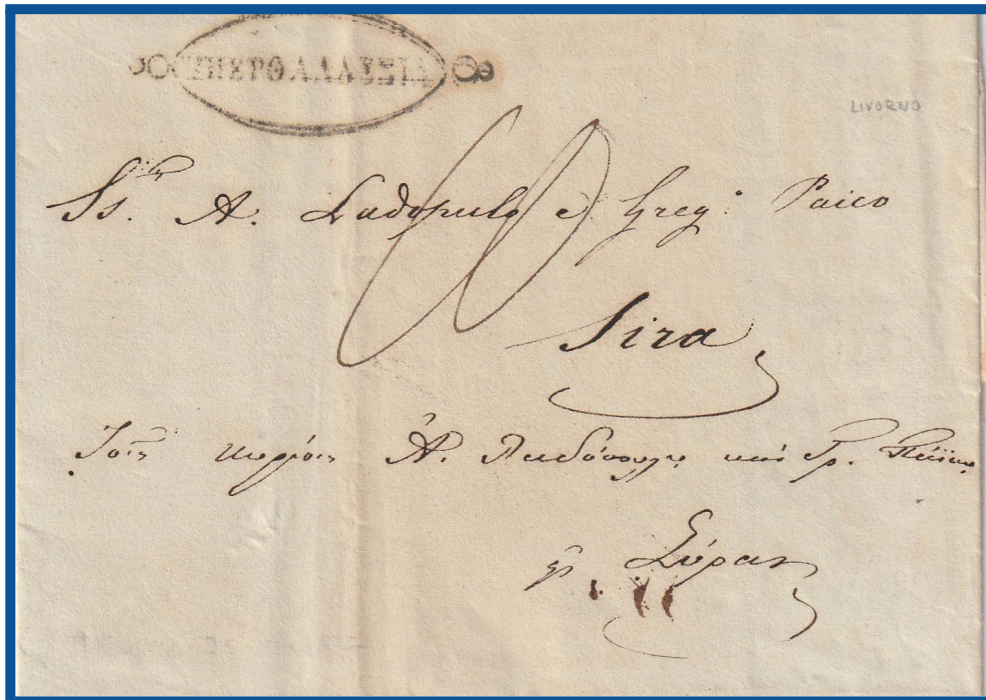 ΥΠΕΡΘΑΛΑΣΣΙΑ
LIVORNO
Ss.ri A. Ladopulo e Greg: Paico
Sira
Τοῖς κυρίοις Ἀ. Λαδόπουλῳ καὶ Γρ. Πάϊκῳ
Σύραν